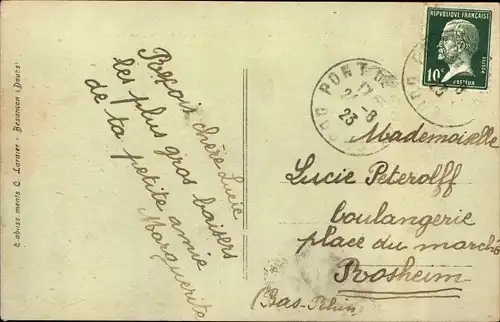 Etabliss. ments C. Lardier - Besançon (Doubs)
Reçois chère Lucie
les plus gros baisers
de ta petite amie
Marguerite
REPUBLIQUE FRANÇAISE
10c
POSTES
PASTEUR
PONT DE
17
2 -8
23
DOU
Mademoiselle
Lucie Peterolff
boulangerie
place du marché
Rosheim
(Bas-Rhin)